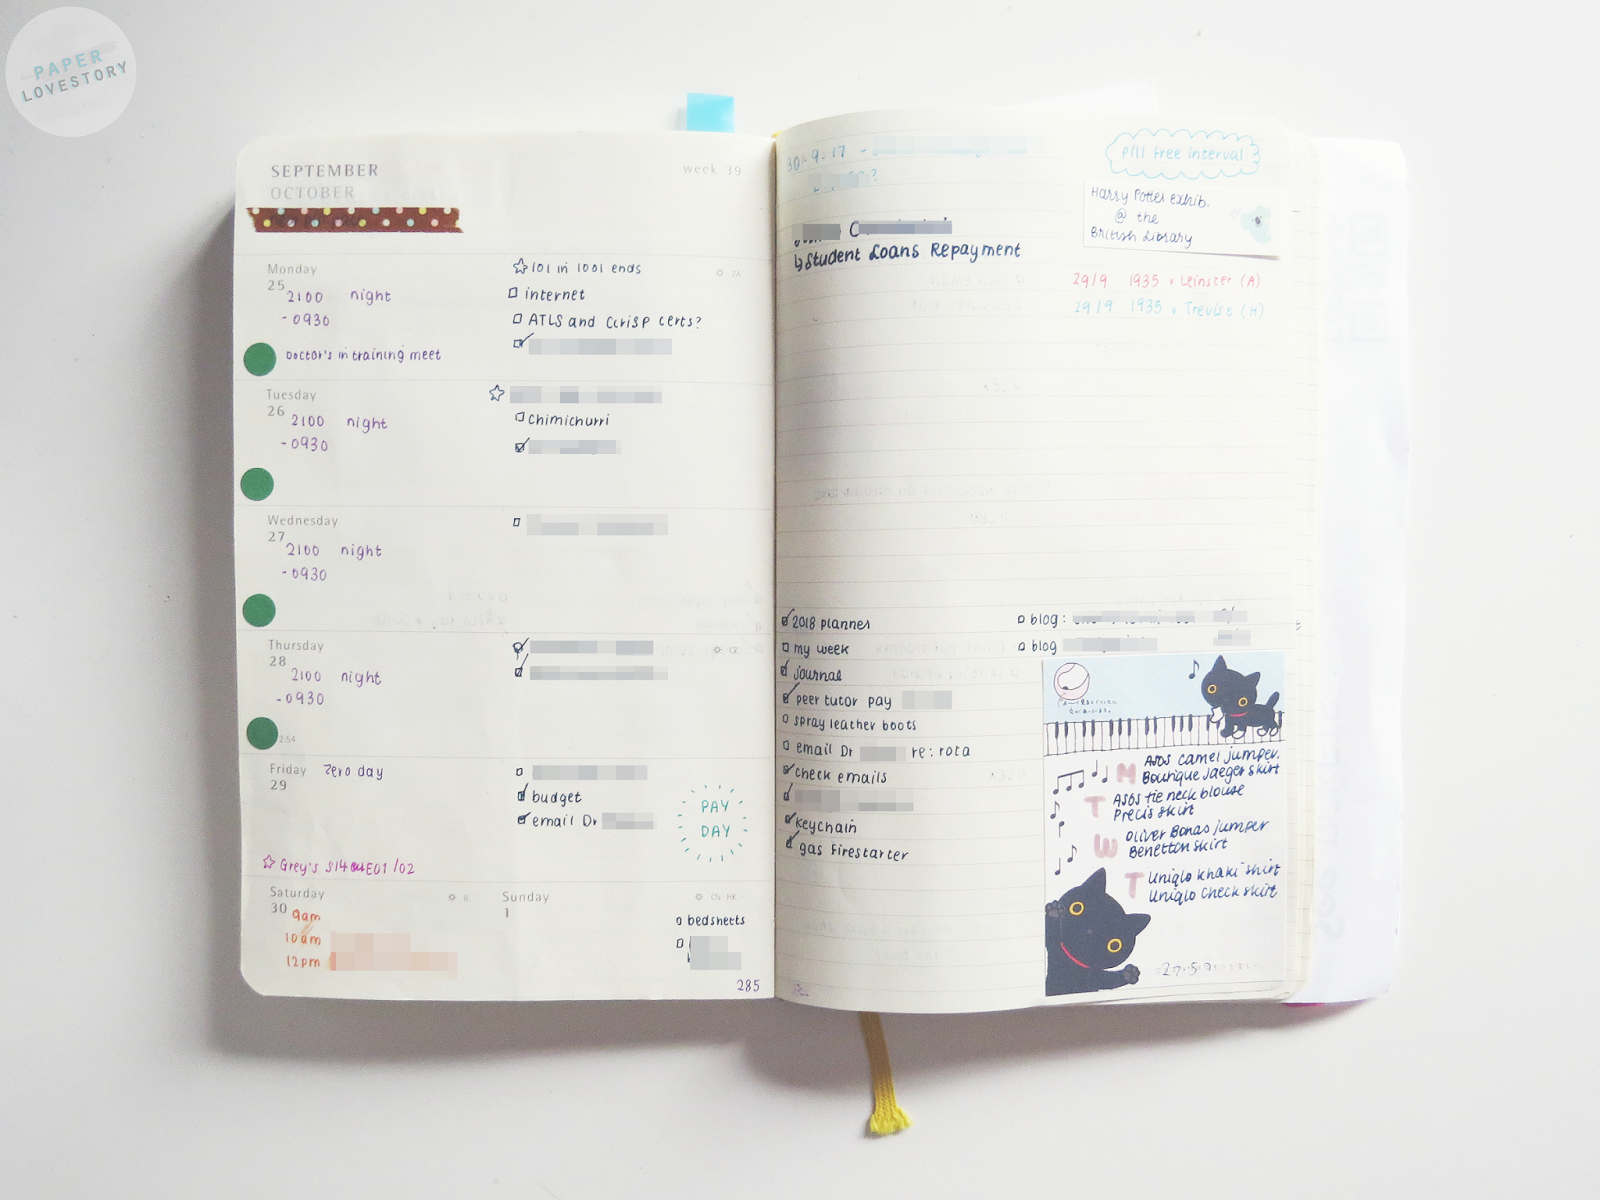 PAPER
LOVESTORY
SEPTEMBER
OCTOBER
week 39
Monday
25
2100 night
- 0930
Doctor's in training meet
101 in 1001 ends
internet
ATLS and CCrISP certs?
Tuesday
26
2100 night
- 0930
chimichurri
Wednesday
27
2100 night
- 0930
Thursday
28
2100 night
- 0930
2:54
Friday
29
Zero day
budget
email Dr
PAY
DAY
Grey's S14 E01/02
Saturday
30
9am
10am
12pm
Sunday
1
CN · HK
bedsheets
285
30-9-17 -
?
Student Loans Repayment
pill free interval
Harry Potter exhib.
@ the
British Library
29/9 1935 v Leinster (A)
29/9 1935 v Treviso (H)
2018 planner
my week
journal
peer tutor pay
spray leather boots
email Dr re: rota
check emails
keychain
gas firestarter
blog:
blog
M ASOS camel jumper.
Boutique Jaeger skirt
T ASOS tie neck blouse
Precis skirt
W Oliver Bonas jumper
Benetton skirt
T Uniqlo khaki shirt
Uniqlo check skirt